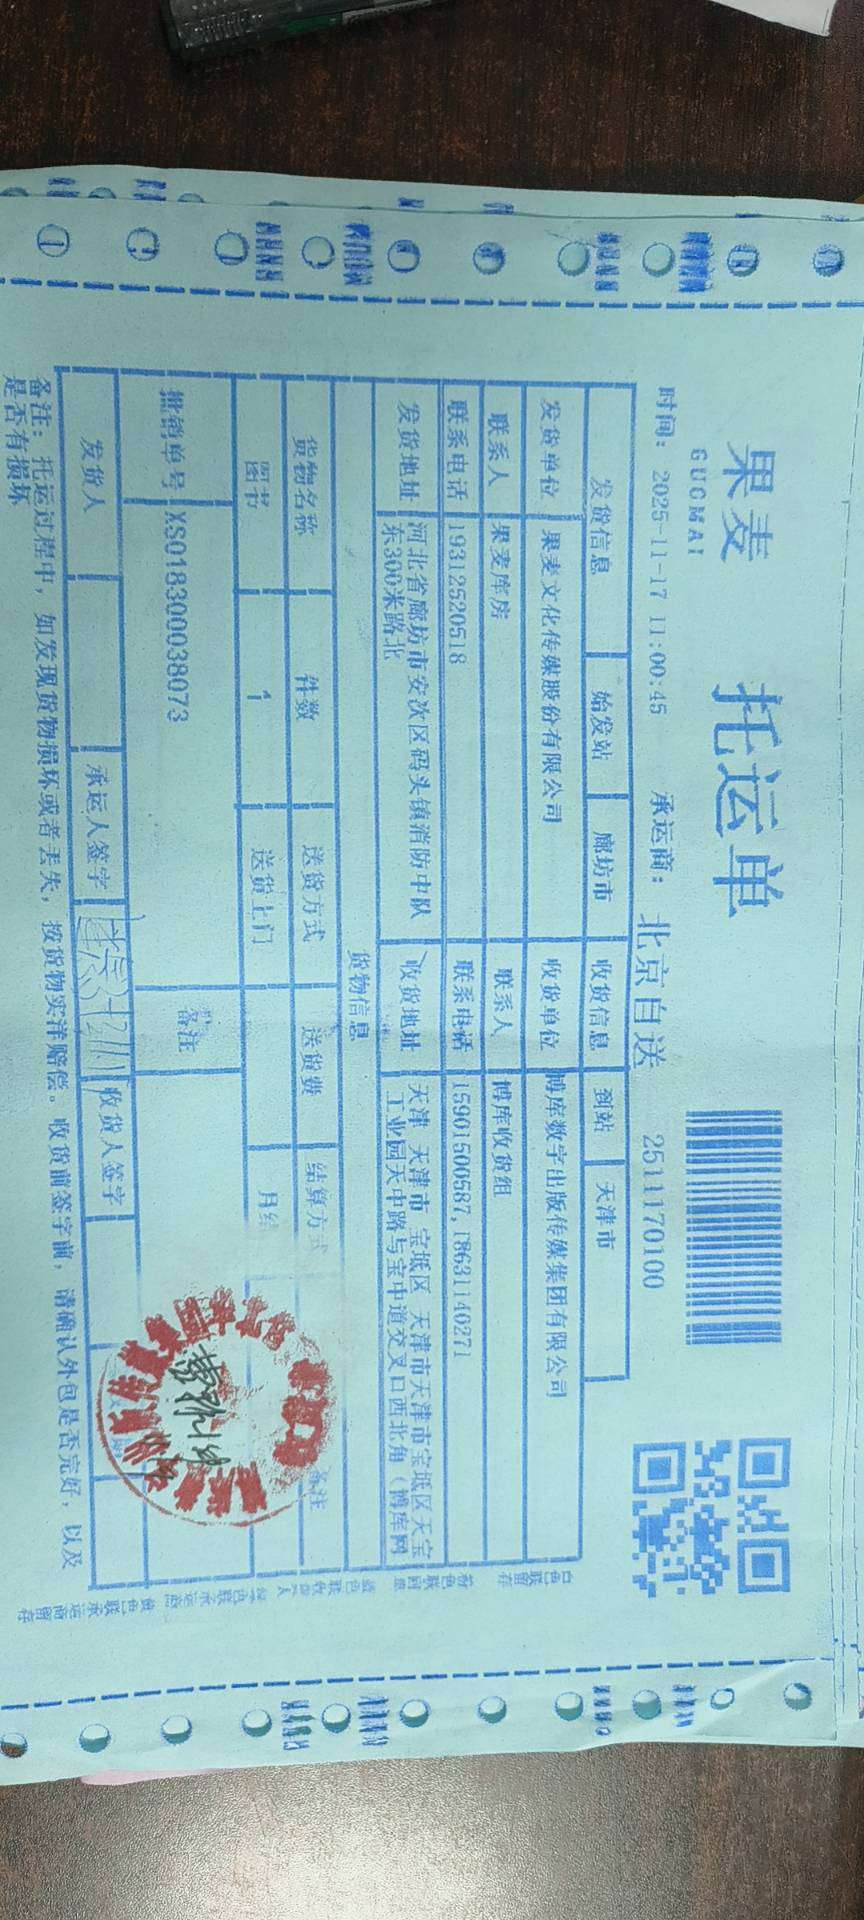 果麦
GUOMAI
托运单
时间: 2025-11-17 11:00:45 承运商: 北京自送 2511170100
发货信息 始发站 廊坊市 收货信息 到站 天津市
发货单位 果麦文化传媒股份有限公司 收货单位 博库数字出版传媒集团有限公司
联系人 果麦库房 联系人 博库收货组
联系电话 19312520518 联系电话 15901500587,18631140271
发货地址 河北省廊坊市安次区码头镇消防中队东300米路北 收货地址 天津 天津市 宝坻区 天津市天津市宝坻区天宝工业园天中路与宝中道交叉口西北角（博库网
货物信息
货物名称 件数 送货方式 送货费 结算方式 备注
图书 1 送货上门 月结
图书
批销单号 XS018300038073 备注
发货人 承运人签字 收货人签字
备注: 托运过程中, 如发现货物损坏或者丢失, 按货物实洋赔偿。收货前签字前, 请确认外包是否完好, 以及
是否有损坏